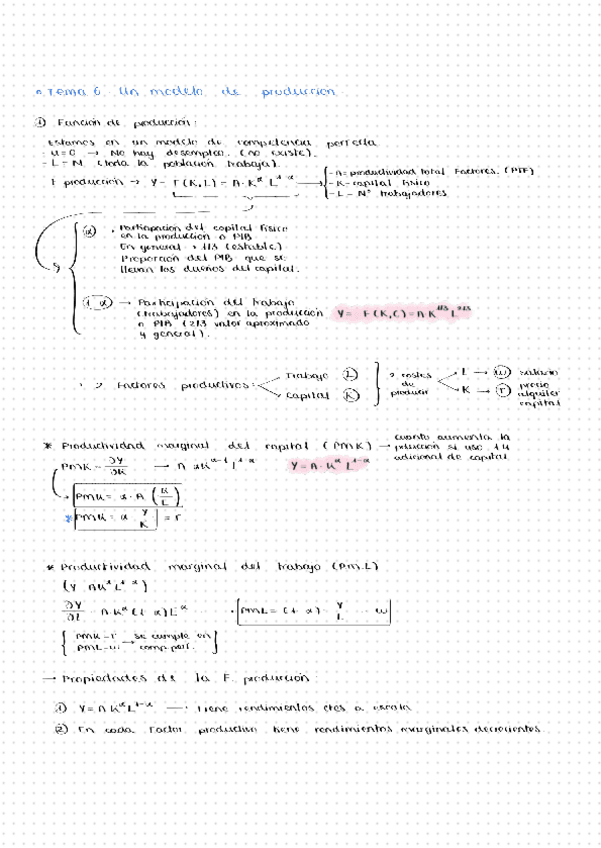 Tema 6. Un modelo de producción
① Función de producción:
Estamos en un modelo de competencia perfecta
- u=0 → No hay desempleo. (no existe).
- L = N (toda la población trabaja).
F. producción → Y = F(K,L) = A·K^α L^1-α
- A = productividad total factores. (PTF)
- K = capital físico
- L = Nº trabajadores
α → Participación del capital físico
en la producción o PIB
En general → 1/3 (estable.)
Proporción del PIB que se
llevan los dueños del capital.
1-α → Participación del trabajo
(trabajadores) en la producción
o PIB (2/3 valor aproximado
y general).
Y = F(K,L) = A K^1/3 L^2/3
2 Factores productivos:
Trabajo L
Capital K
2 costes
de
producir
L → w salario
K → r precio
alquiler
capital
* Productividad marginal del capital (PMK) →
cuanto aumenta la
producción si uso 1 u
adicional de capital
PMK = ∂Y/∂K → A αK^α-1 L^1-α
Y = A·K^α L^1-α
PMK = α·A (K/L)
* PMK = α Y/K = r
* Productividad marginal del trabajo (PM.L)
(Y = AK^α L^1-α)
∂Y/∂L = A·K^α (1-α) L^-α
PML = (1-α)· Y/L = w
PMK = r
PML = w
→ se cumple en
comp. perf.
→ Propiedades de la F. producción
① Y = A K^α L^1-α → Tiene rendimientos ctes a escala
② En cada factor productivo tiene rendimientos marginales decrecientes